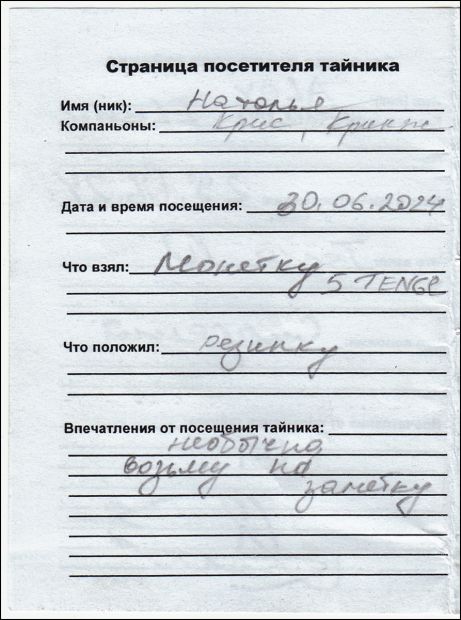 Страница посетителя тайника
Имя (ник): Наталья
Компаньоны: Крис,
Дата и время посещения: 30.06.2024
Что взял: Монетку
5 TENGE
Что положил: резинку
Впечатления от посещения тайника:
необычно
возьму на
заметку